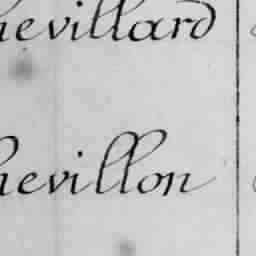 hevillard
hevillon